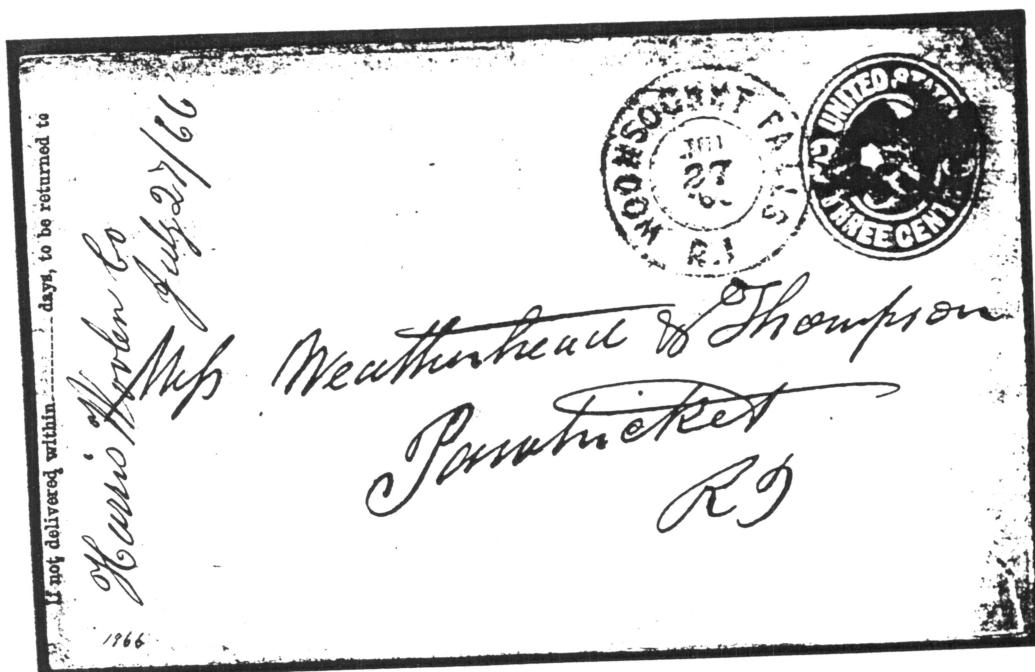 If not delivered within days, to be returned to
Harris Woolen Co
July 27/66
WOONSOCKET FALLS
JUL
27
R.I
UNITED STATES
THREE CENTS
Mess Weatherhead & Thompson
Pawtucket
RI
1866